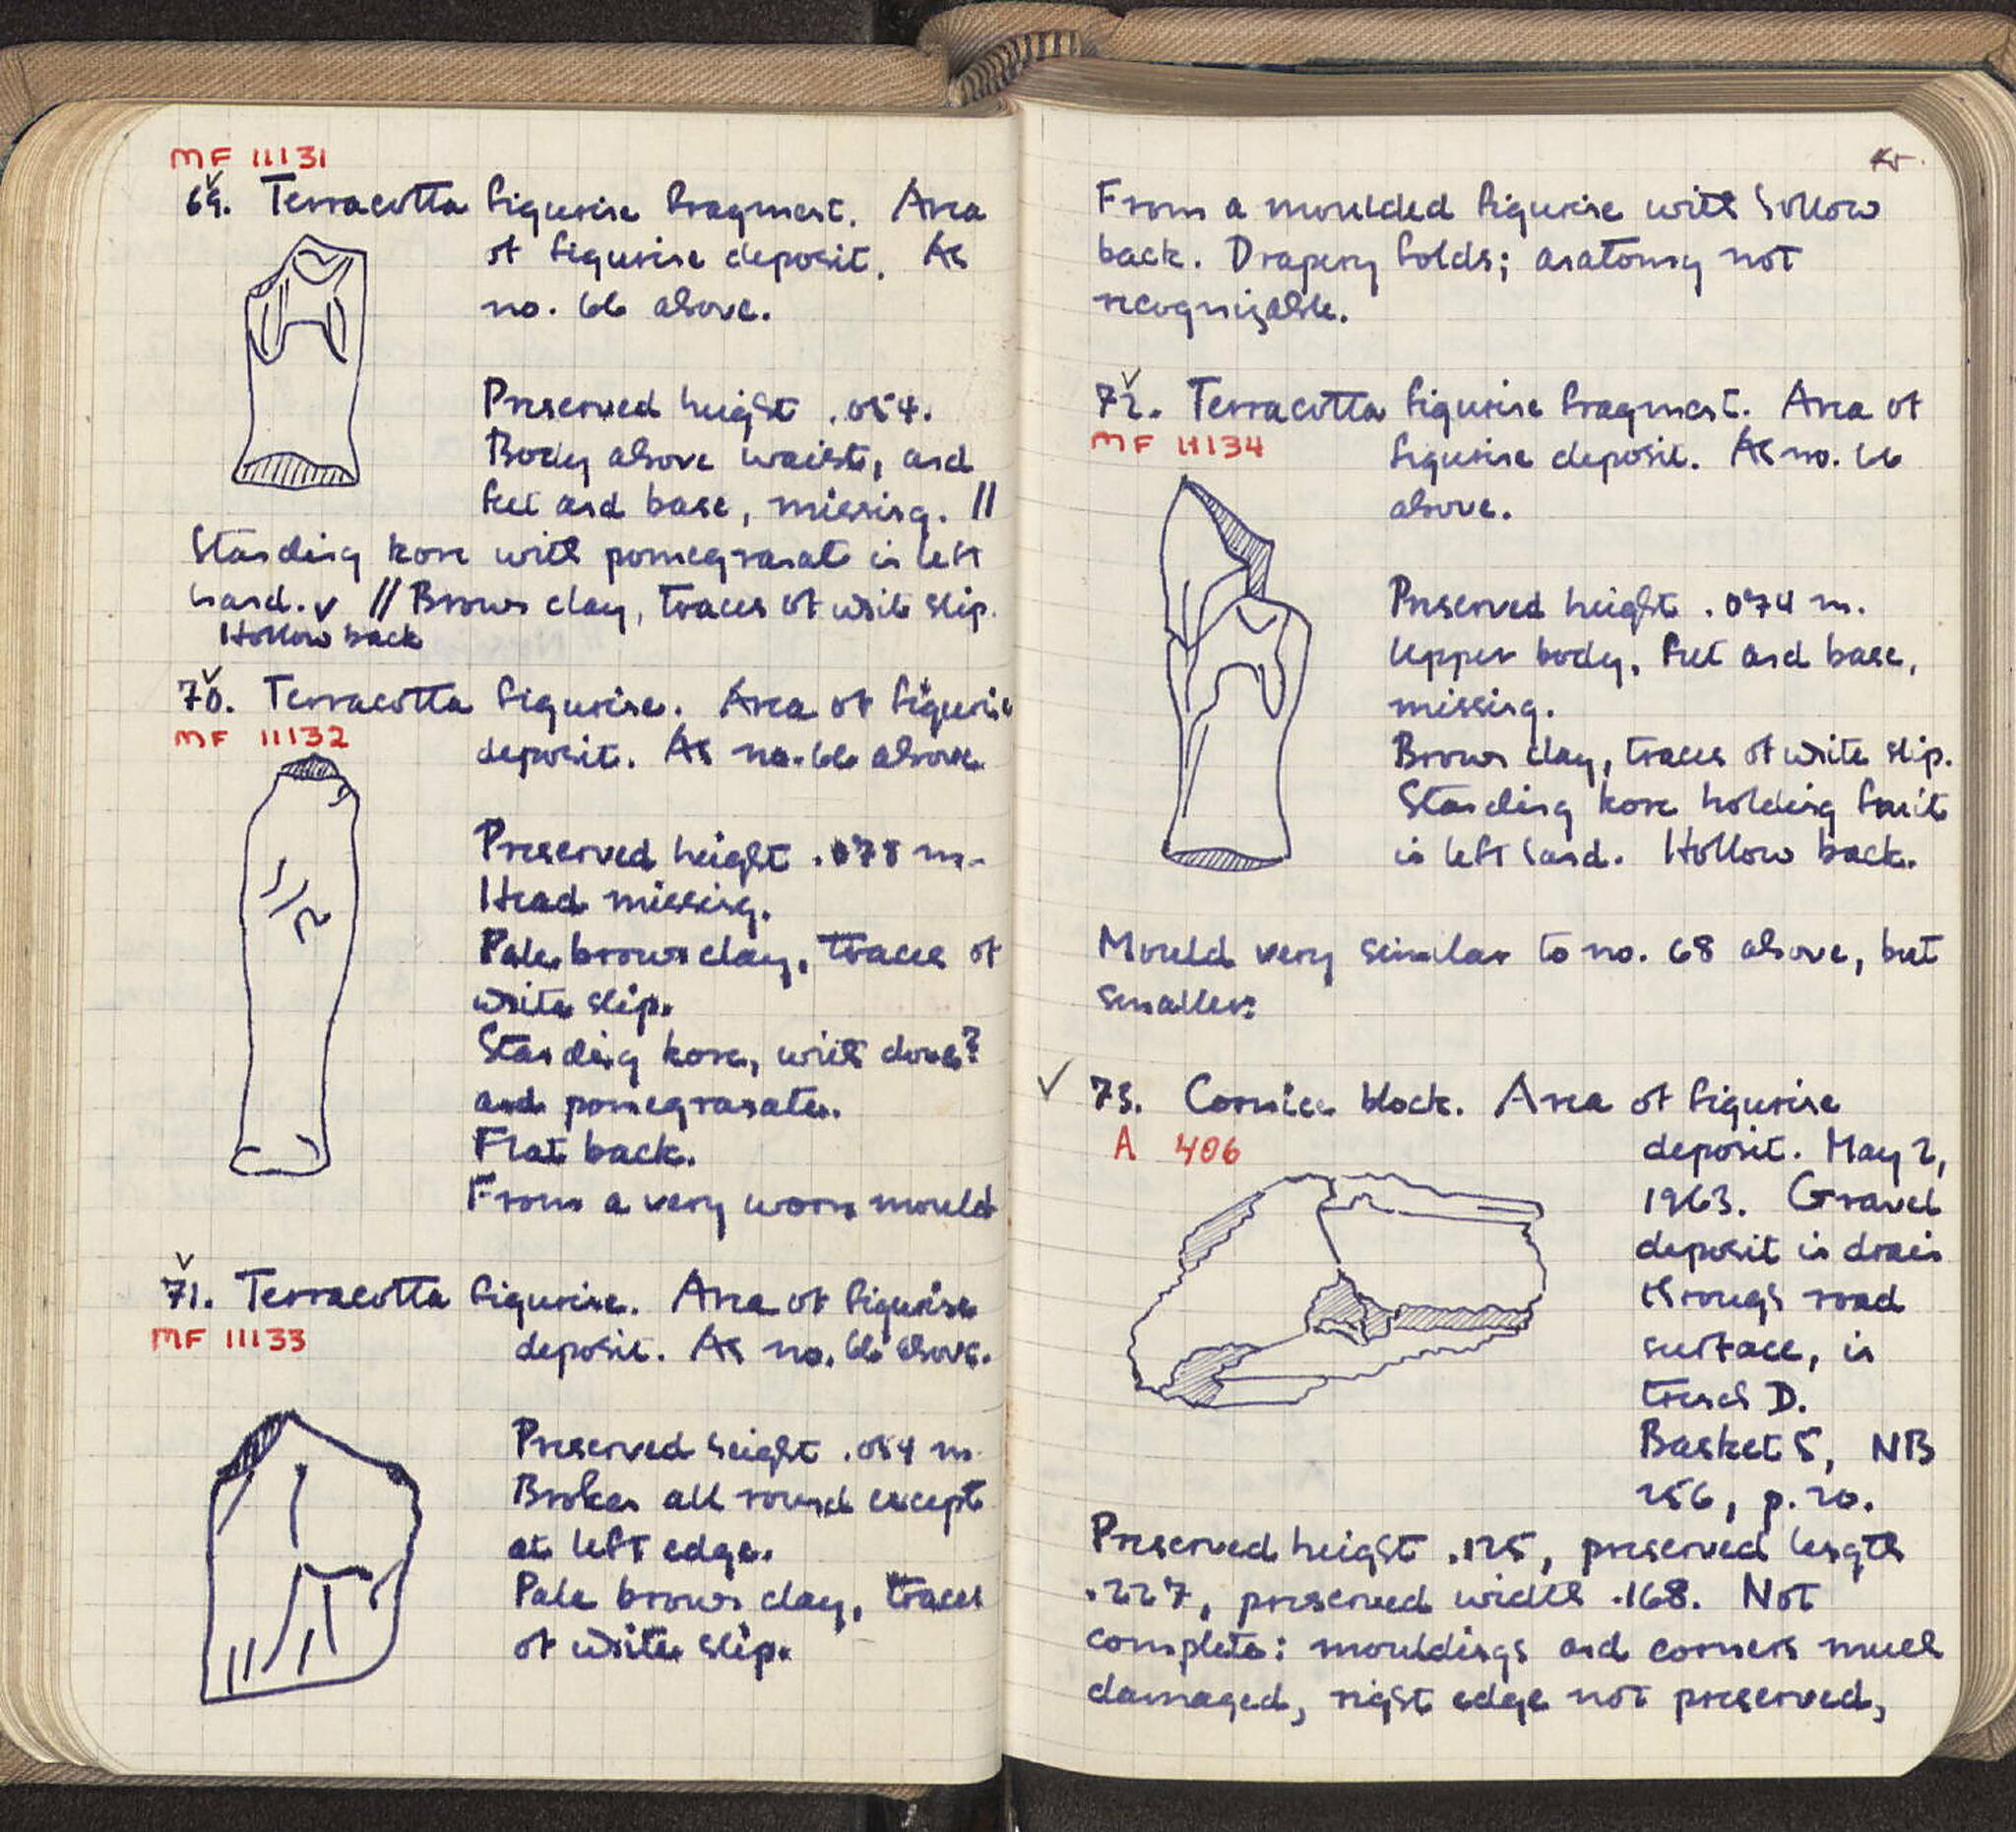 MF 11131
69. Terracotta figurine fragment. Area
of figurine deposit. As
no. 66 above.
Preserved height .054.
Body above waist, and
feet and base, missing. //
Standing kore with pomegranate in left
hand. v // Brown clay, traces of white slip.
Hollow back
70. Terracotta figurine. Area of figurine
MF 11132
deposit. As no. 66 above.
Preserved height .078 m.
Head missing.
1/2
Pale brown clay, traces of
white slip.
Standing kore, with dove?
and pomegranate.
Flat back.
From a very worn mould
71. Terracotta figurine. Area of figurine
MF 11133
deposit. As no. 66 above.
Preserved height .054 m.
Broken all round except
at left edge.
Pale brown clay, traces
of white slip.
From a moulded figurine with hollow
back. Drapery folds; anatomy not
recognizable.
72. Terracotta figurine fragment. Area of
MF 11134
figurine deposit. As no. 66
above.
Preserved height .074 m.
Upper body, feet and base,
missing.
Brown clay, traces of white slip.
Standing kore holding fruit
in left hand. Hollow back.
Mould very similar to no. 68 above, but
smaller.
✓ 73. Cornice block. Area of figurine
A 406
deposit. May 2,
1963. Gravel
deposit in drain
through road
surface, in
trench D.
Basket 5, NB
256, p. 20.
Preserved height .125, preserved length
.227, preserved width .168. Not
complete: mouldings and corners much
damaged, right edge not preserved,